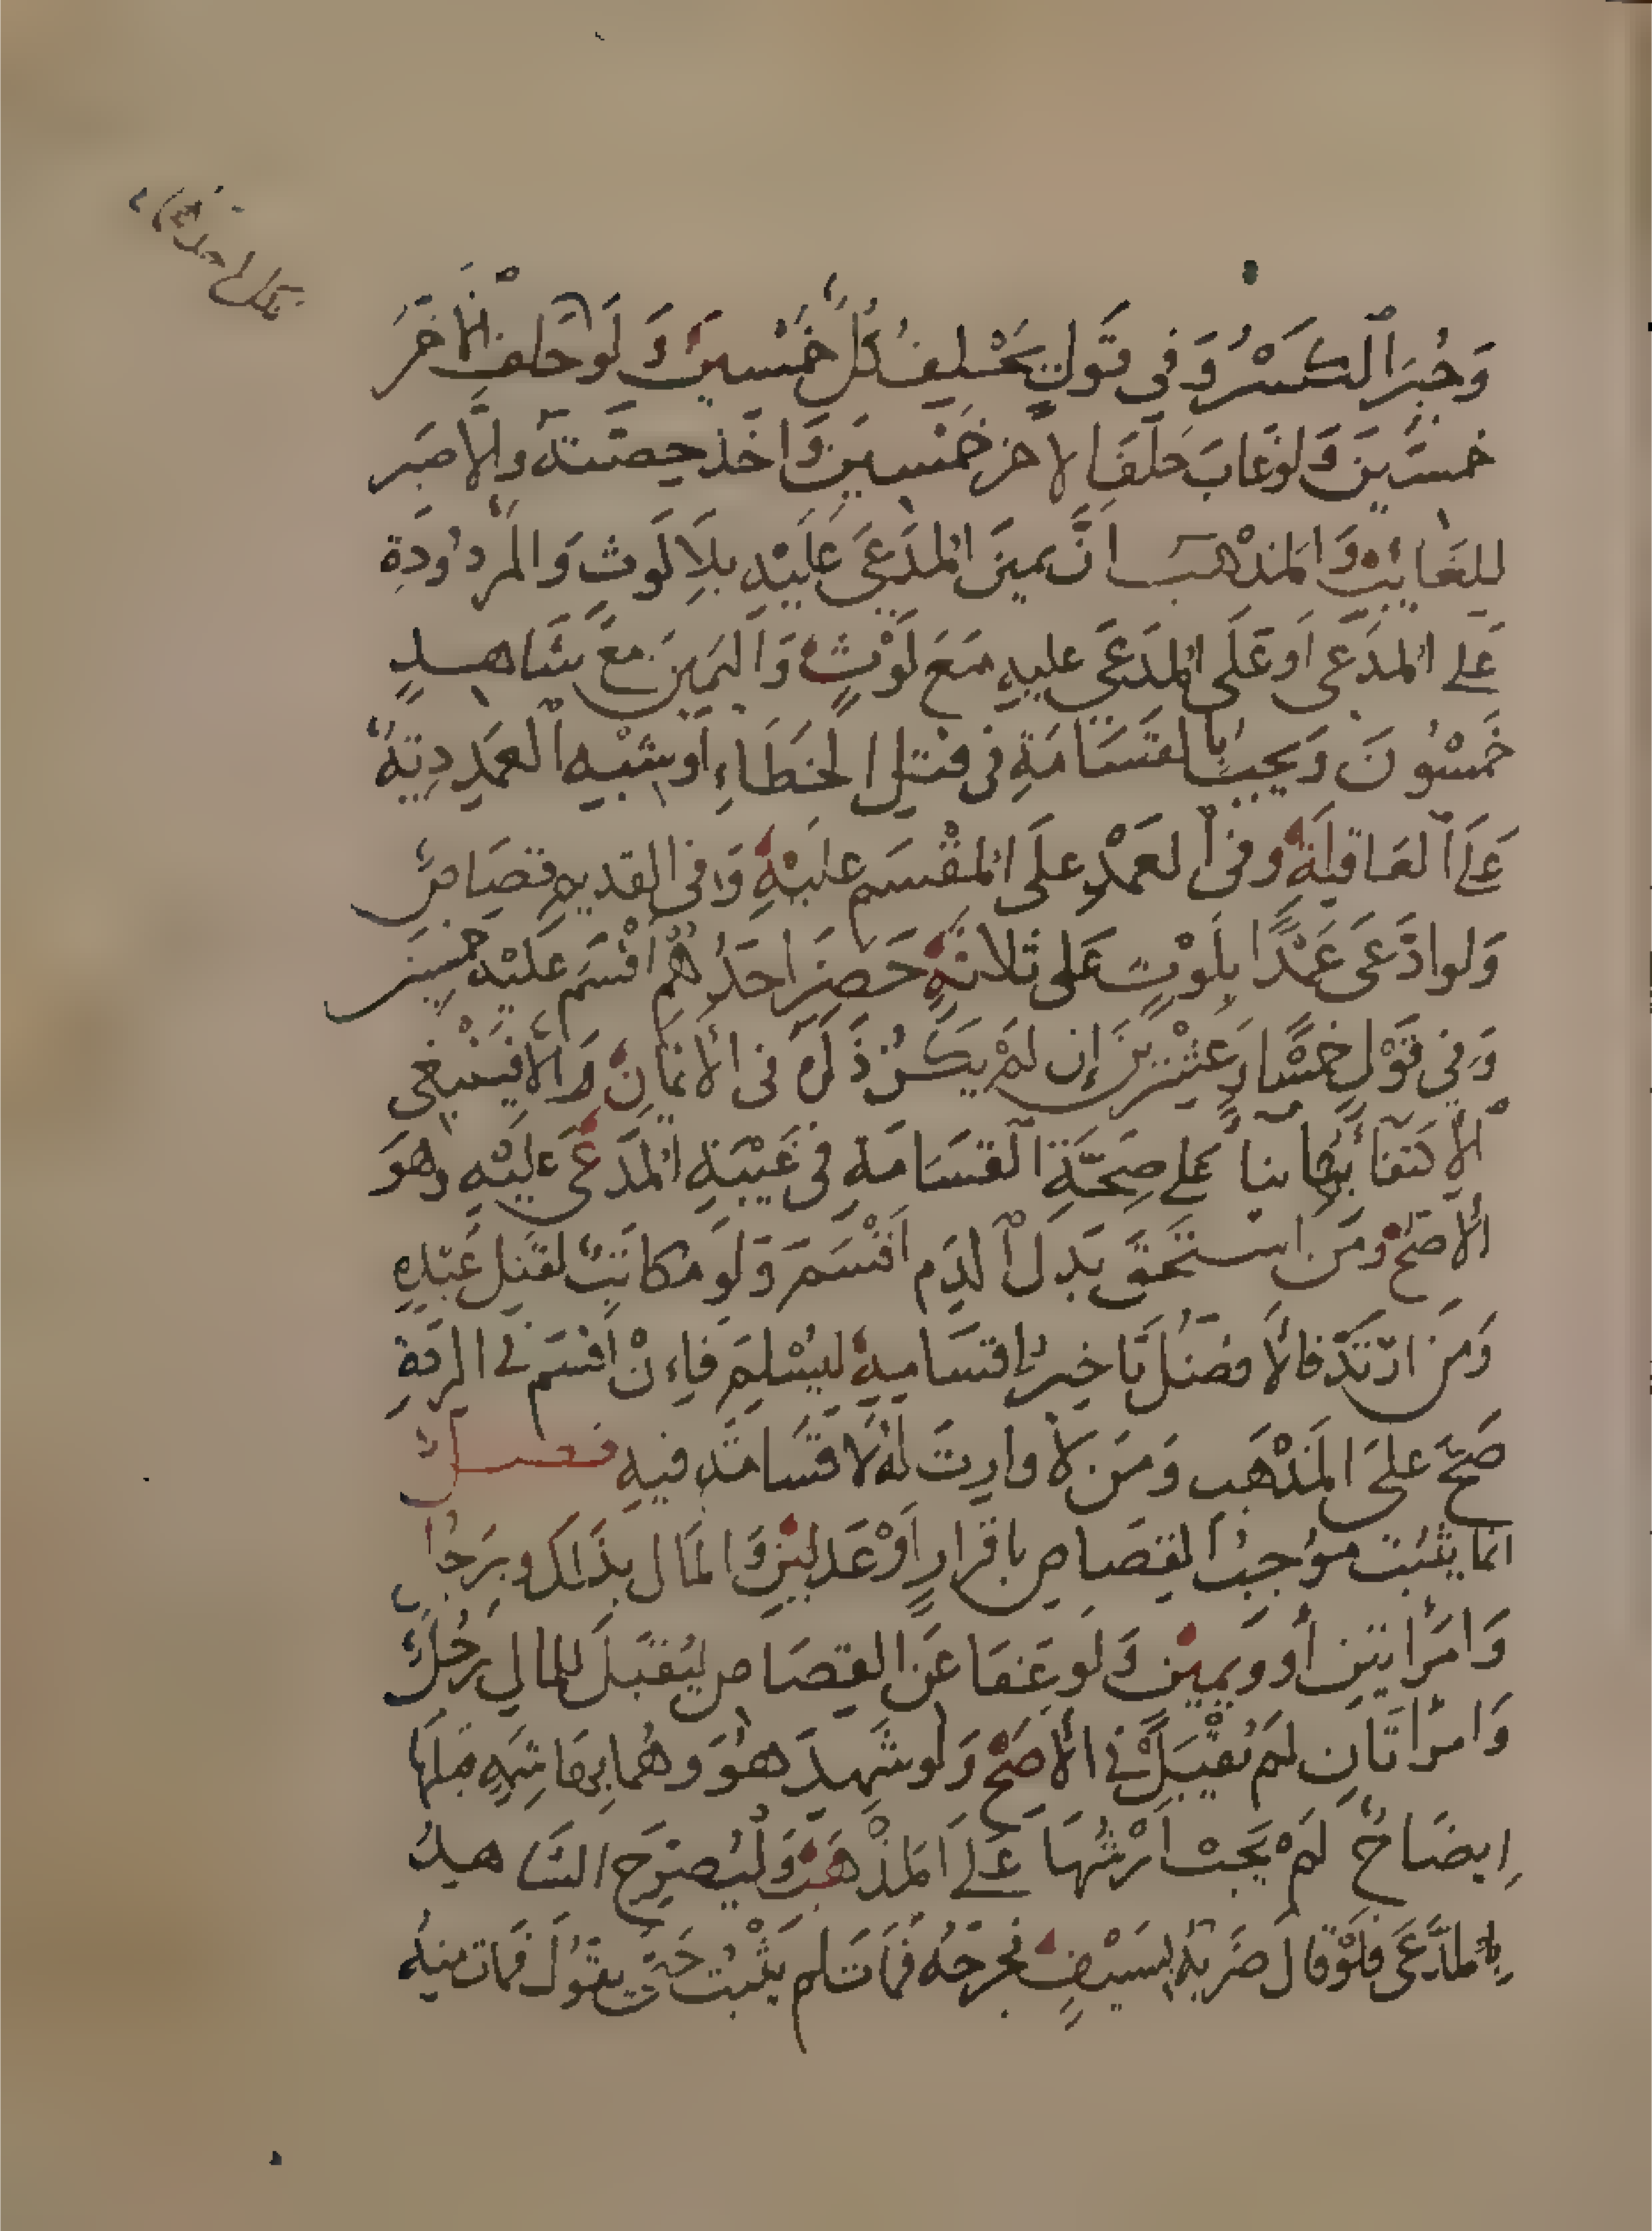 وَجُبِرَ الْكَسْرُ وَفِي قَوْلٍ يَحْلِفُ كُلٌّ خَمْسِينَ وَ لَوْ حَلَفَ الْآخَرُ
خمسين وَلو غابَ حَلَفَ الاخر خَمْسِينَ وَاخَذَ حِصَّتَهُ والَّا صَبَر
للغَائِبِ وَالمَذْهَب انَّ يمينَ المُدَّعَى عَلَيْهِ بِلَا لَوث وَالمَرْدُودَةِ
عَلَى المدَّعى اَو عَلَى المُدَّعَى عليهِ مَعَ لَوْثٍ وَاليَمِينَ مَعَ شَاهِدٍ
خَمْسُونَ وَيجبُ بِالقَسَامَةِ في قتلِ الخَطَاءِ اَو شِبْهِ العَمدِ دِيَةٌ
عَلَى العَاقِلَةِ وفي الْعَمْدِ علَى المُقْسَمِ عليْهِ وَفي القديم قِصَاصٌ
وَلو ادَّعَى عَمْدًا بِلَوْثٍ عَلَى ثلاثَةٍ حَضَرَ احَدُهُم اقْسَمَ عَلَيْهِ خمسين
وَفي قَوْلٍ خمْسًا وعِشْرِينَ إن لَمْ يَكُن ذَكَرَهُ في الأَيْمَانِ وَالَّا فَيَنْبَغي
الْاكتفَا بِهَا بنا على صِحَّةِ القَسَامَةِ في غَيْبَةِ المُدَّعَى عليْهِ وهوَ
الأَصَحُّ ومَن استَحقَّ بَدَلَ الدَمِ اقْسَمَ وَلَو مكاتَبٌ لقتلِ عَبْدِهِ
وَمَن ارْتَدَّ فَالأَفضَلُ تَاخيرُ اقسَامِهِ ليُسْلِمَ فَإِنْ اَقسَم في الردةِ
صَحَّ علَى المَذْهَب وَمَن لَا وارِثَ لَهُ لَا قَسَامَةَ فيهِ فصل
انما يثبُت موُجِبُ القِصَاصِ باقرارٍ اَوْ عَدلَيْنِ وَالمَال بِذَلك وبِرَجُلٍ
وَامرَأتينِ أَو ويمِينٍ وَلَو عَفَا عَن القِصَاصِ لِيُقْبَلَ لِلمالِ رَجُلٌ
وَامرَأتَانِ لم يُقْبَلْ في الأَصَحِّ وَلو شَهِدَ هوَ وَهُمَا بِهَاشِمَةٍ قبلَهَا
ايضَاحٌ لَمْ يَجبْ اَرْشُهَا عَلَى المَذْهَبِ وَلْيُصَرِّحِ الشَّاهِدُ
بِالمُدَّعَى فلَوْ قَالَ ضَرَبَهُ بِسَيْفٍ فجَرَحَهُ فَمَاتَ لم يَثْبُتْ حَتَّى يقُولَ فمات منهُ